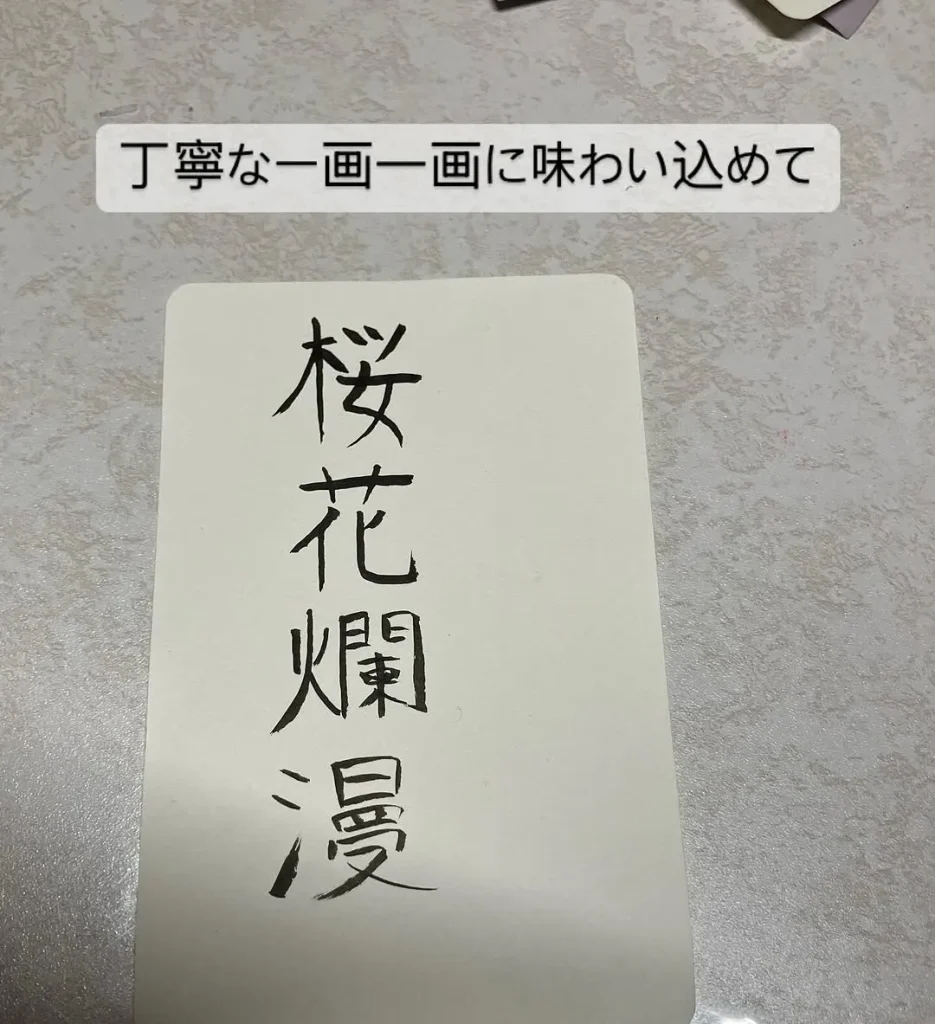 丁寧な一画一画に味わい込めて
桜花爛漫